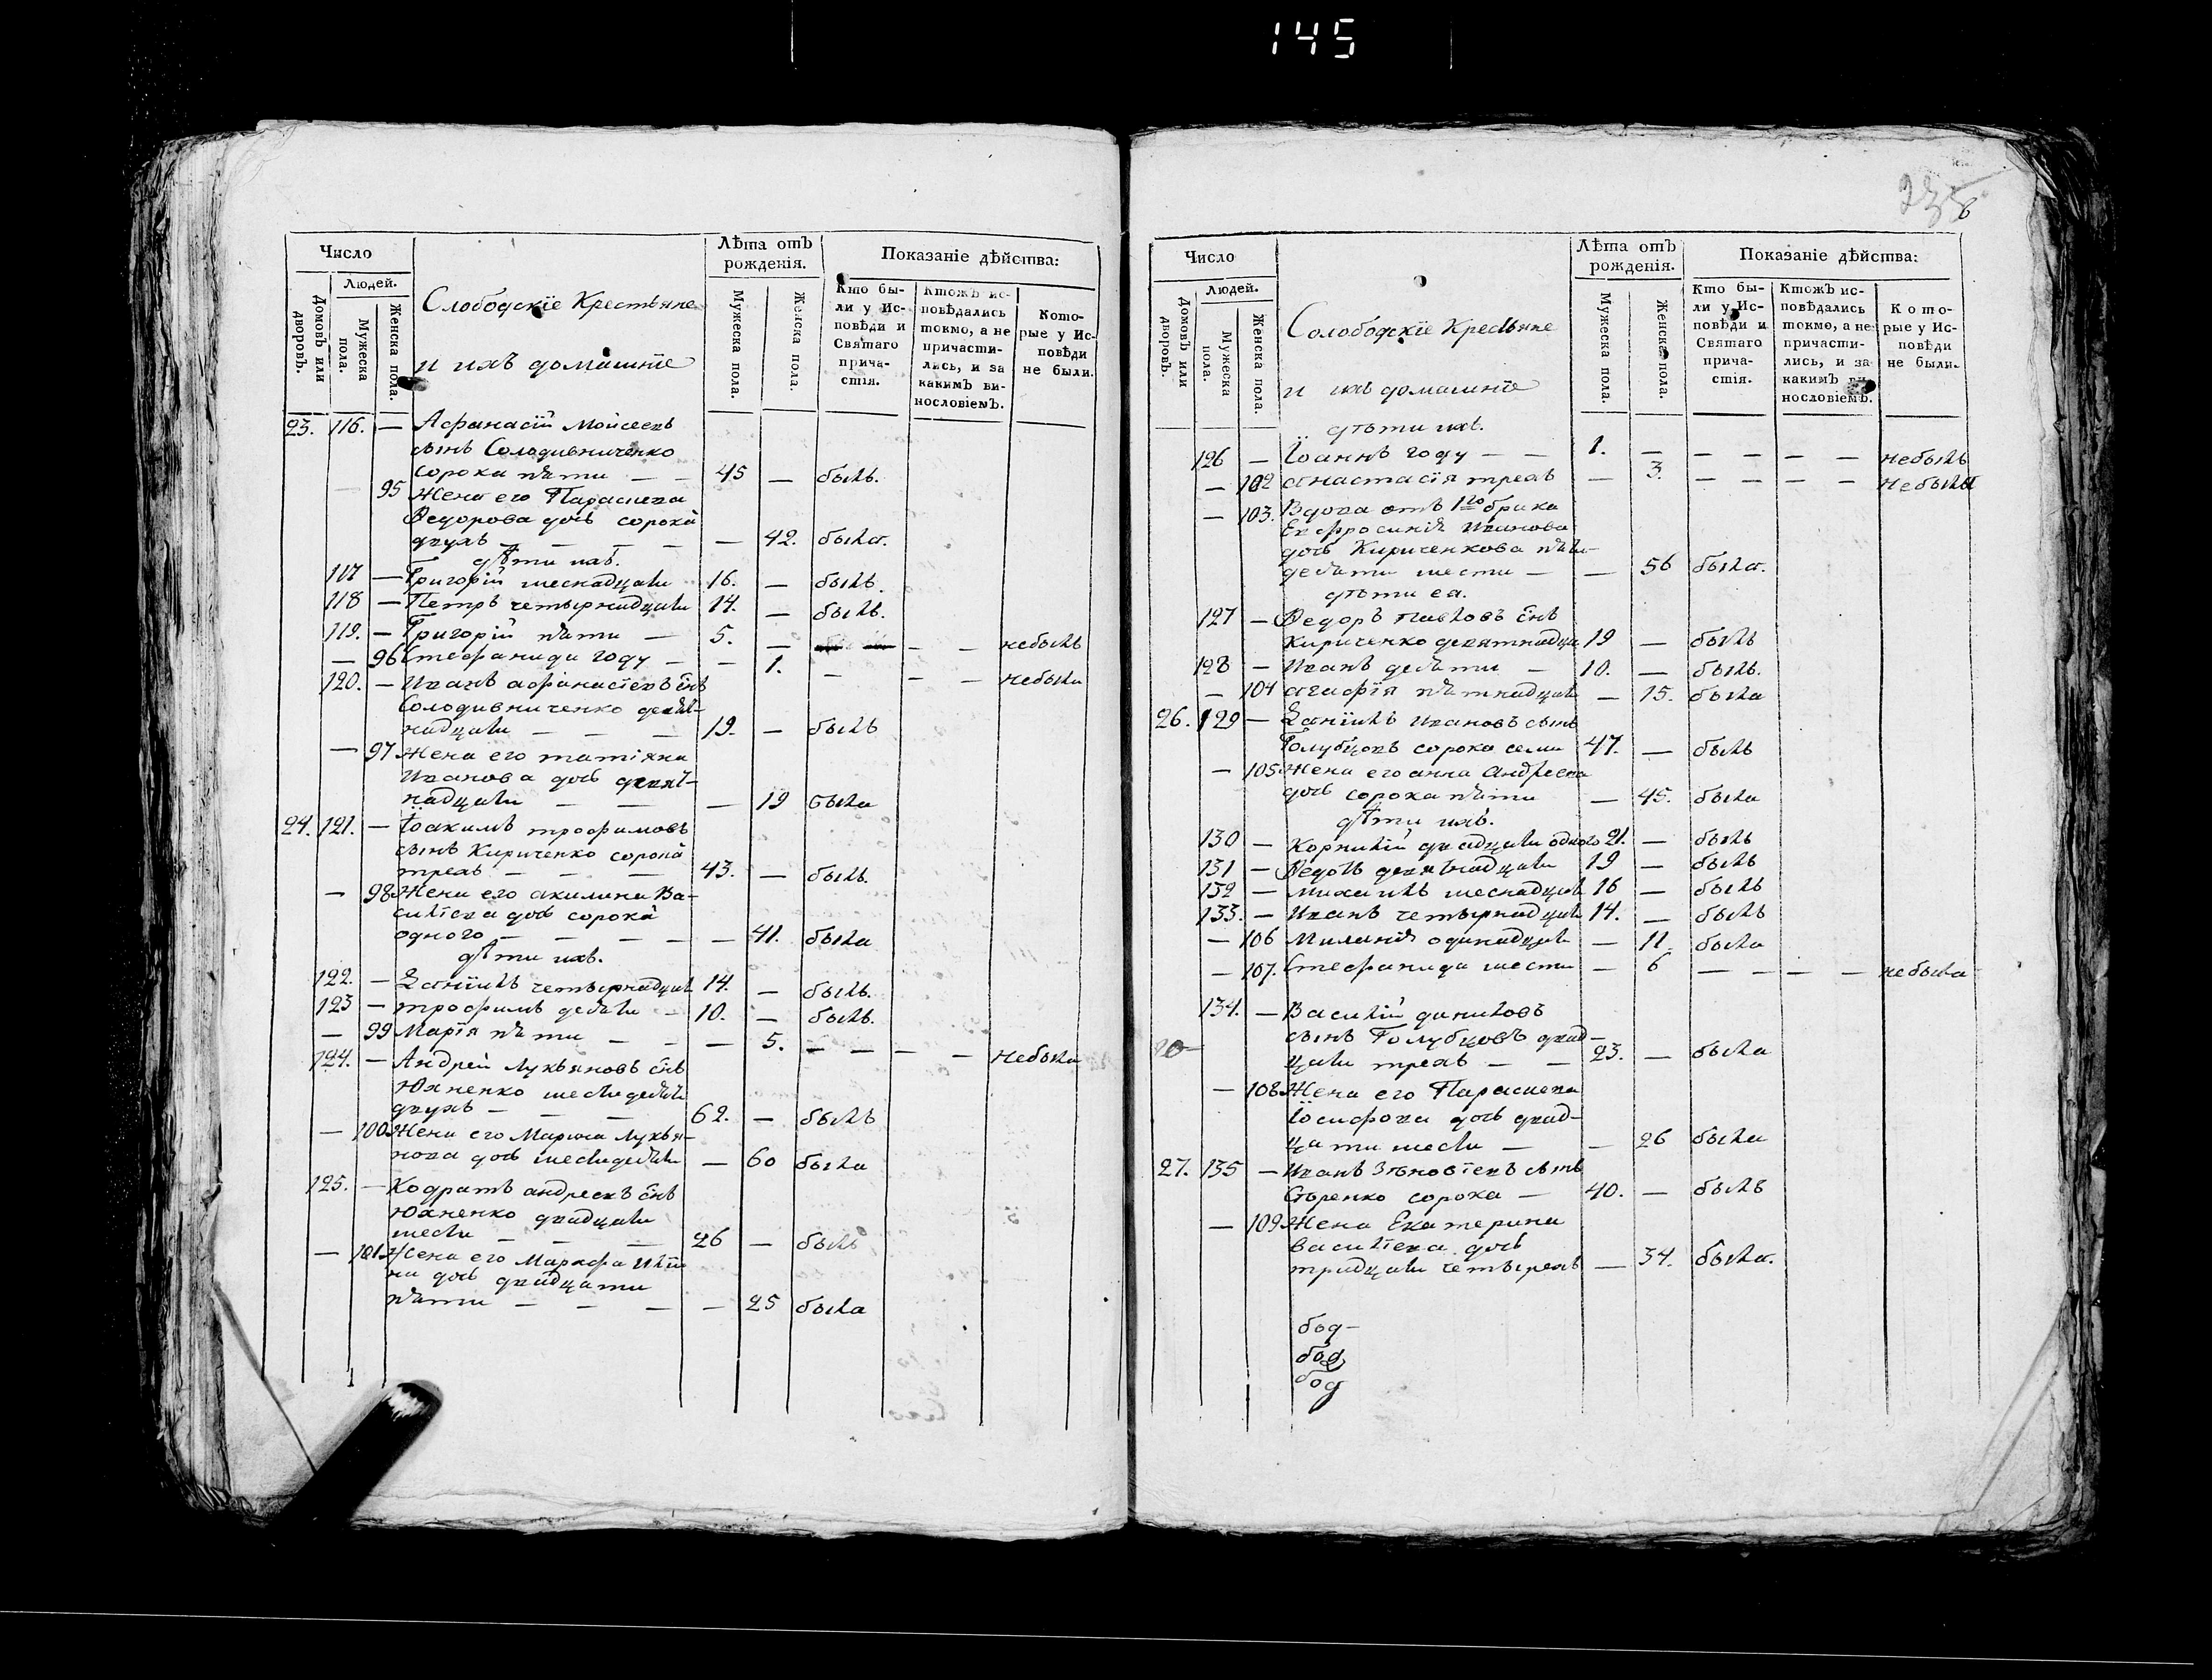 145
Число
Людей.
Домовъ или дворовъ.
Мужеска пола.
Женска пола.
Слободскїе Крестьяне
и ихъ домашнїе
Лѣта отъ рожденія.
Мужеска пола.
Женска пола.
Показаніе дѣйства:
Кто бы-
ли у Ис-
повѣди и
Святаго
прича-
стія.
Ктожъ ис-
повѣдались
токмо, а не
причасти-
лись, и за
какимъ ви-
нословіемъ.
Кото-
рые у Ис-
повѣди
не были.
23. 116. — Афанасїй Мойсеевъ
сынъ Солодивниченко
сорока пяти — — 45 — былъ.
— 95 Жена его Параскева
Федорова дочь сорока
двухъ — — — — — 42. была.
дѣти ихъ.
117 — Григорїй шеснадцати 16. — былъ.
118 — Петръ четырнадцати 14. — былъ.
119. — Григорїй пяти — 5. — — — небылъ
— 96 Стефанида году — — 1. — — — небыла
120. — Иванъ афанасїевъ снъ
Солодивниченко девят-
надцати — — — 19. — былъ
— 97 Жена его татїяна
Иванова дочь девят-
надцати — — — 19 была
24. 121. — Іоакимъ трофимовъ
сынъ Кириченко сорока
трехъ — — — 43. — былъ.
— 98 Жена его акилина Ва-
силїева дочь сорока
одного — — — — — 41. была
дѣти ихъ.
122. — Данїилъ четырнадцат 14. — былъ.
123 — трофимъ десяти — 10. — былъ.
— 99 Марїя пяти — — — 5. — — — — небыла
124. — Андрей лукьяновъ снъ
Юхненко шестидесяти
двухъ — — — 62. — былъ
— 100 Жена его Марина Лукья-
нова дочь шестидесяти — 60 была
125. — Кодратъ андреевъ снъ
Юхненко двадцати
шести — — — 26 — былъ
— 101 Жена его Марфа
на дочь двадцати
пяти — — — — 25 была
235
6
Число
Людей.
Домовъ или дворовъ.
Мужеска пола.
Женска пола.
Солободскїе Крестьяне
и ихъ домашнїе
Лѣта отъ рожденія.
Мужеска пола.
Женска пола.
Показаніе дѣйства:
Кто бы-
ли у Ис-
повѣди и
Святаго
прича-
стія.
Ктожъ ис-
повѣдались
токмо, а не
причасти-
лись, и за
какимъ ви-
нословіемъ.
Кото-
рые у Ис-
повѣди
не были.
дѣти ихъ.
126 — Іоаннъ году — — 1. — — — — — небылъ
— 102 анастасїя трехъ — 3. — — — — небыла
— 103. Вдова отъ 1го брака
Евфросинїя Иванова
дочь Кириченкова пять-
десяти шести — — 56 была.
дѣти еа.
127 — Федоръ павловъ снъ
Кириченко девятнадца 19 — былъ
128 — Иванъ десяти — 10. — былъ.
— 104 агафїя пятнадцати — 15. была
26. 129 — Данїилъ Ивановъ сынъ
Голубцовъ сорока семи 47. — былъ
— 105 Жена его анна Андреева
дочь сорока пяти — 45. была
дѣти ихъ.
130 — Корнилїй двадцати одного 21. — былъ
131 — Федотъ девятнадцати 19 — былъ
132 — михаилъ шеснадцат 16 — былъ
133. — Иванъ четырнадцат 14. — былъ
— 106 Миланїя одинадцати — 11. была
— 107. Стефанида шести — 6 — — — — небыла
134. — Василїй даниловъ
сынъ Голубцовъ двад-
цати трехъ — — 23. — была
20
— 108 Жена его Параскева
Іосифова дочь двад-
цати шести — — 26 была
27. 135 — Иванъ Зѣновїевъ сынъ
Сѣренко сорока — 40. — былъ
— 109 Жена Екатерина
василїева дочь
тридцати четырехъ — 34. была.
бод-
бод
бод